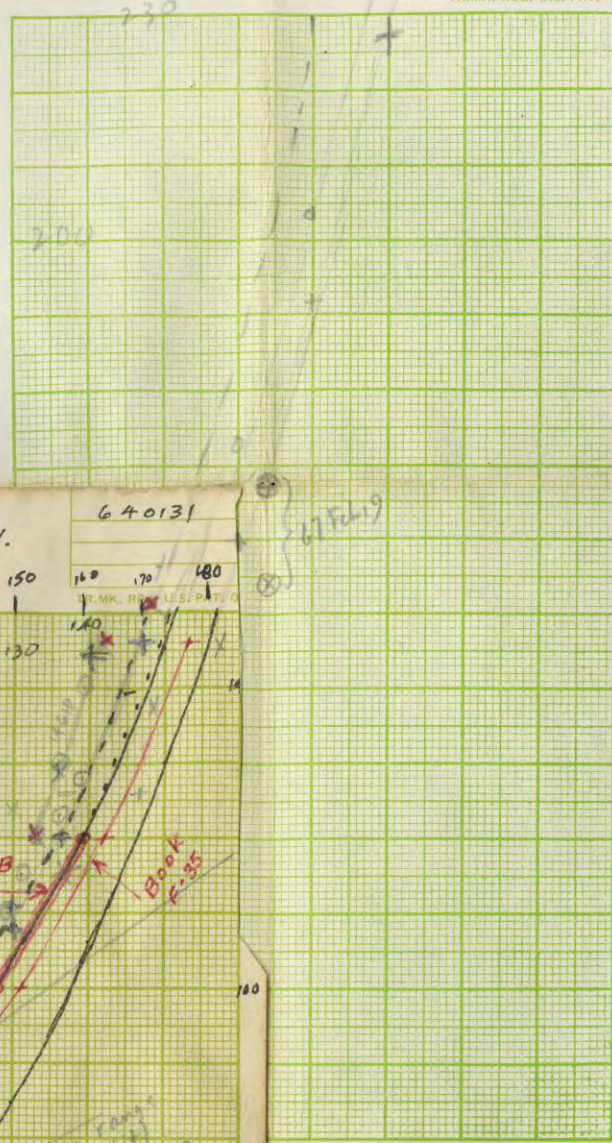 230
200
67 Feb 19
640131
150 160 170 180
TR.MK. RE U.S. PAT. O
130 140
160
B
Book
F-35
100
range